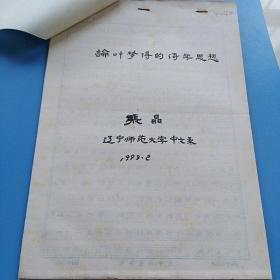 論叶梦得的诗学思想
張晶
辽宁师范大学中文系
1993.2